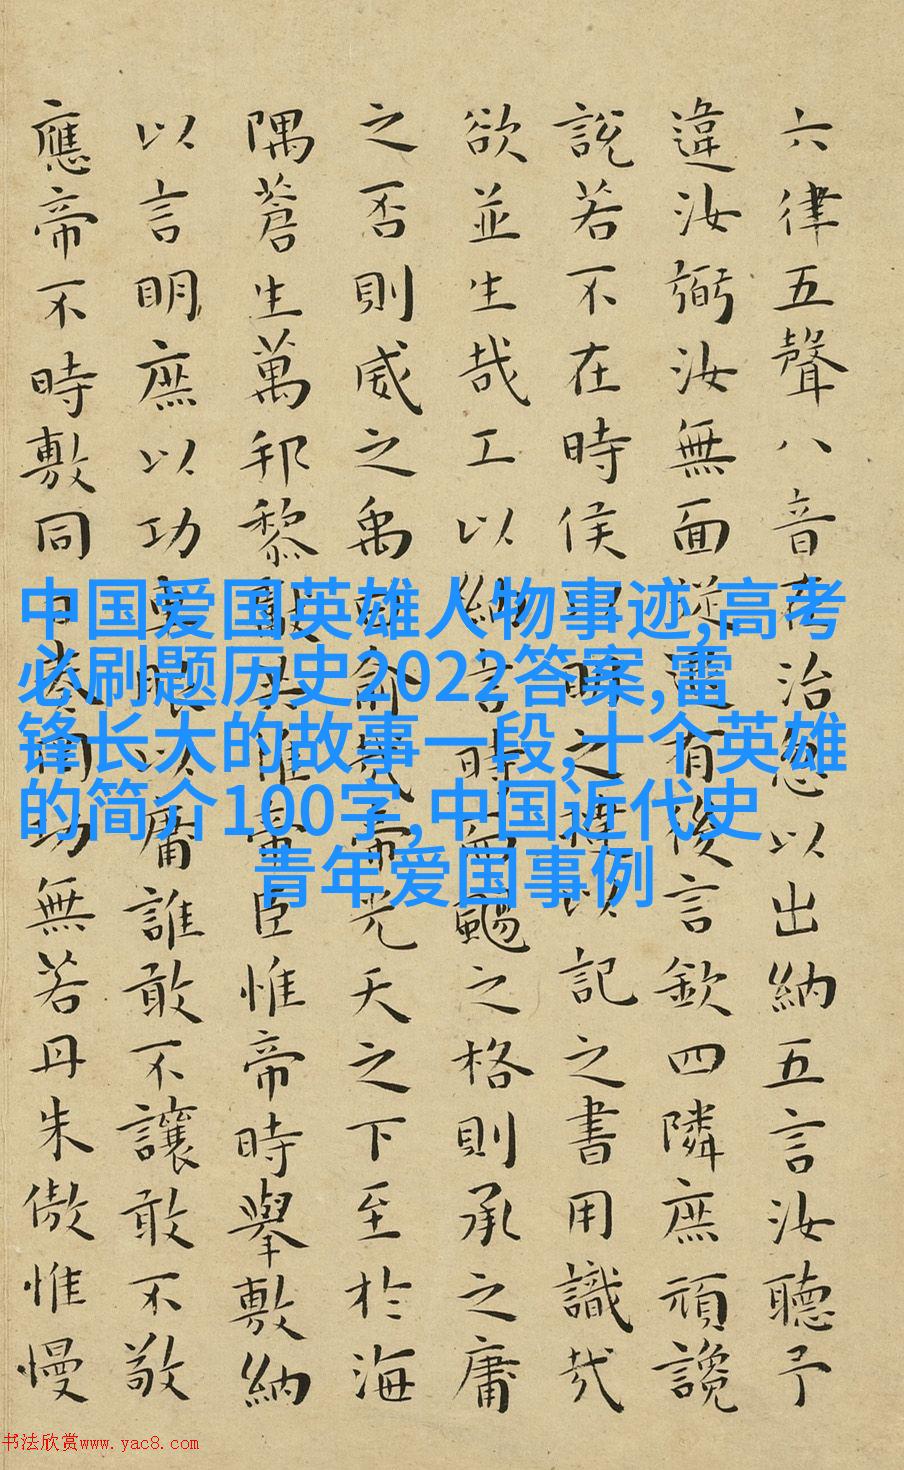 六律五聲八音在治忽以出納五言汝聽予
違汝弼汝無面從退有後言欽四隣庶頑讒
說若不在時侯以明之撻以記之書用識哉
欲並生哉工以納言時而颺之格則承之庸
之否則威之禹曰俞哉帝光天之下至於海
隅蒼生萬邦黎獻共惟帝臣惟帝時舉敷納
以言明庶以功車服以庸誰敢不讓敢不敬
應帝不時敷同日奏罔功無若丹朱傲惟慢
中国爱国英雄人物事迹,高考
必刷题历史2022答案,雷
锋长大的故事一段,十个英雄
的简介100字,中国近代史
青年爱国事例
书法欣赏www.yac8.com